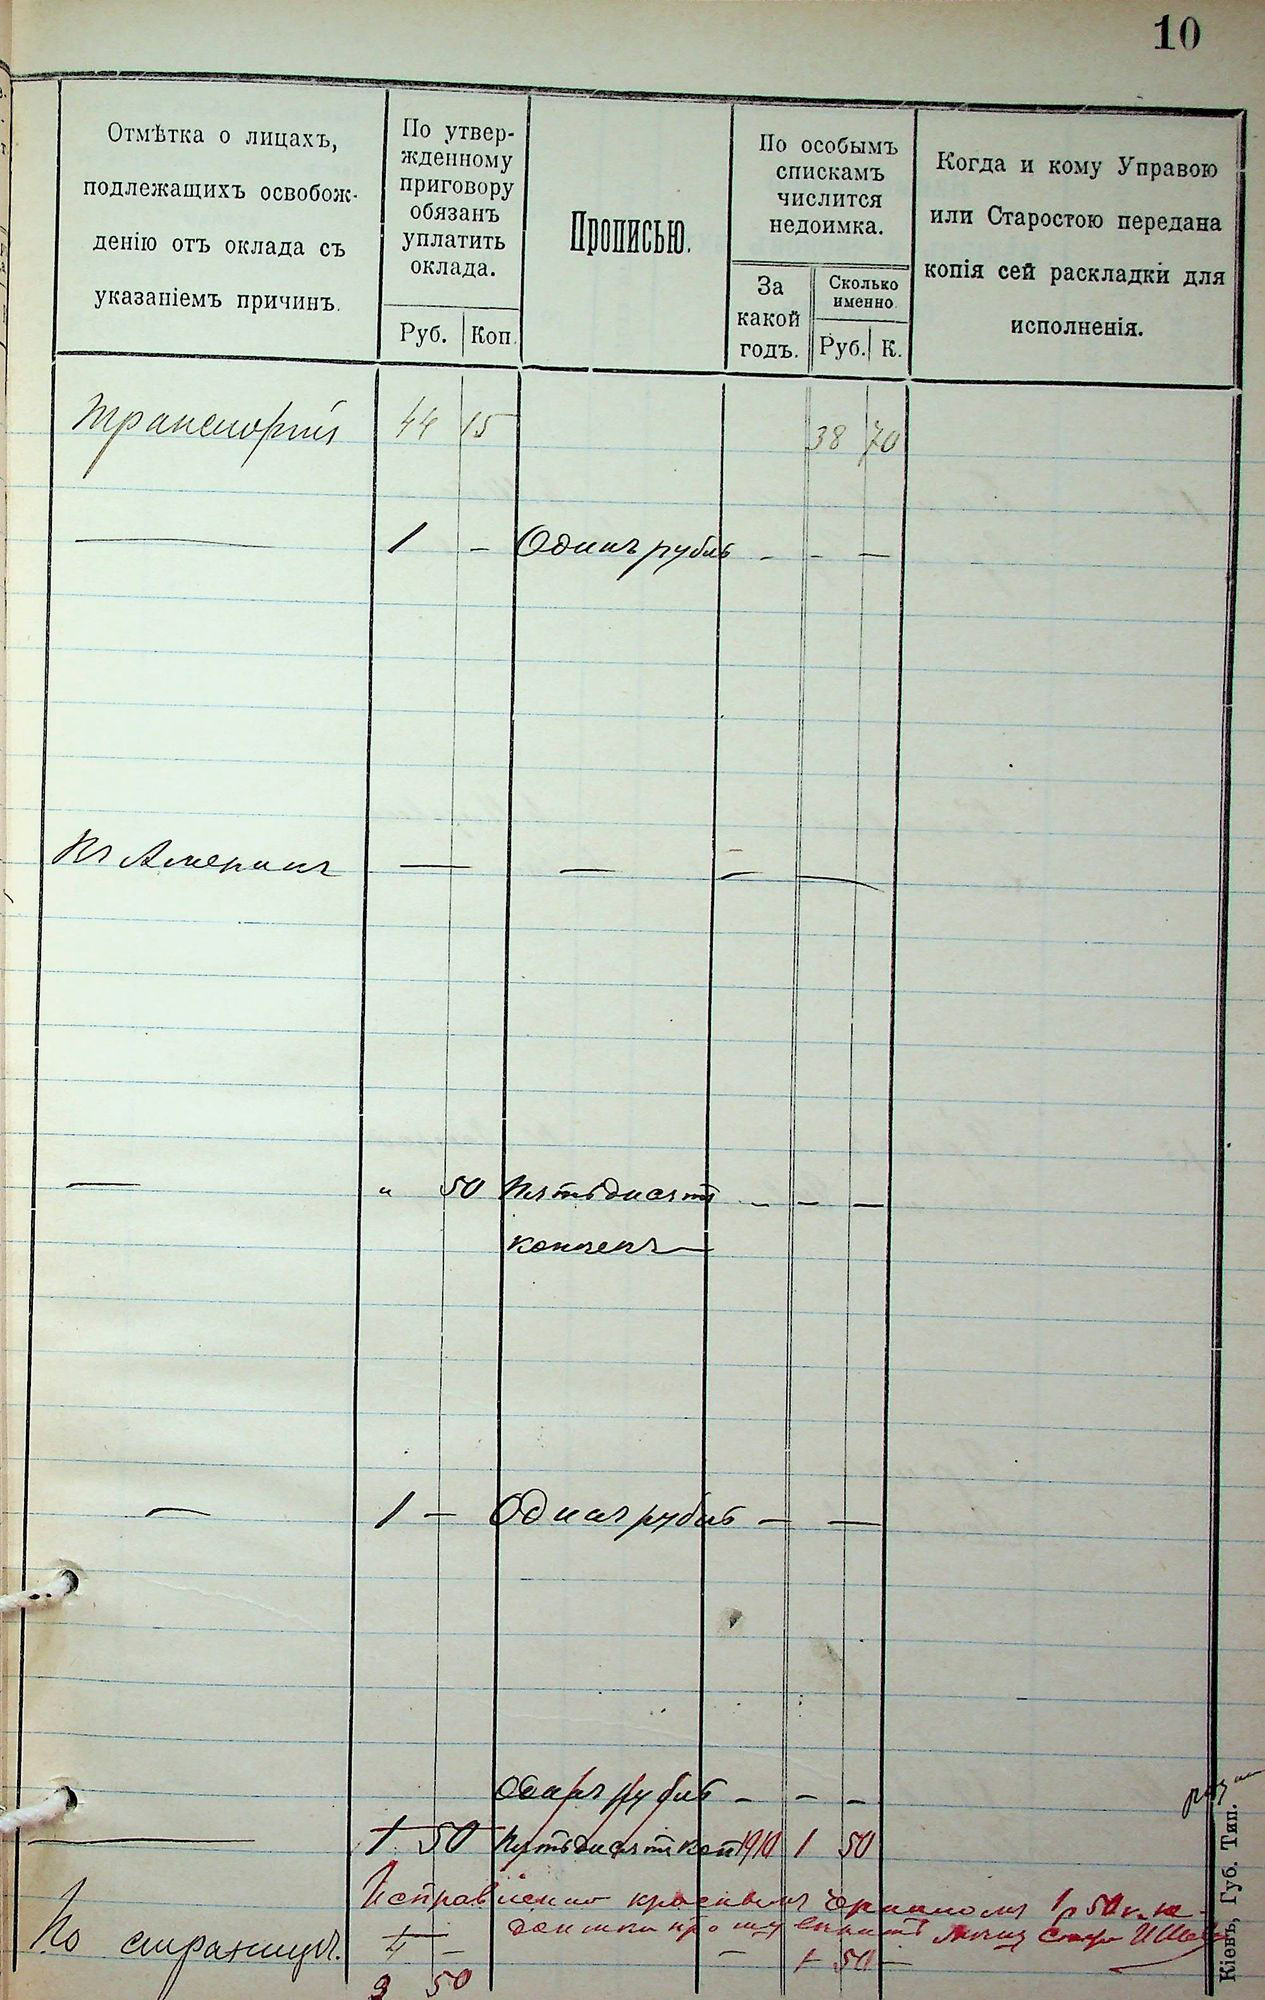 10
Отмѣтка о лицахъ,
подлежащихъ освобож-
денію отъ оклада съ
указаніемъ причинъ.
По утвер-
жденному
приговору
обязанъ
уплатить
оклада.
Руб. Коп.
Прописью.
По особымъ
спискамъ
числится
недоимка.
За
какой
годъ.
Сколько
именно.
Руб. К.
Когда и кому Управою
или Старостою передана
копія сей раскладки для
исполненія.
Транспортъ 44 15 38 70
— 1 - Одинъ рубль - - —
Въ Америкѣ — — - —
— " 50 Пятьдисятъ - - —
копѣекъ —
— 1 — Одинъ рубль — —
Одинъ рубль - - -
— 1 50 Пятьдисятъ коп 1910 1 50
Исправленно красными чернилами 1 р 50 к
По страницѣ. 4 - - 1 50 -
3 50
Кіевъ, Губ. Тип.